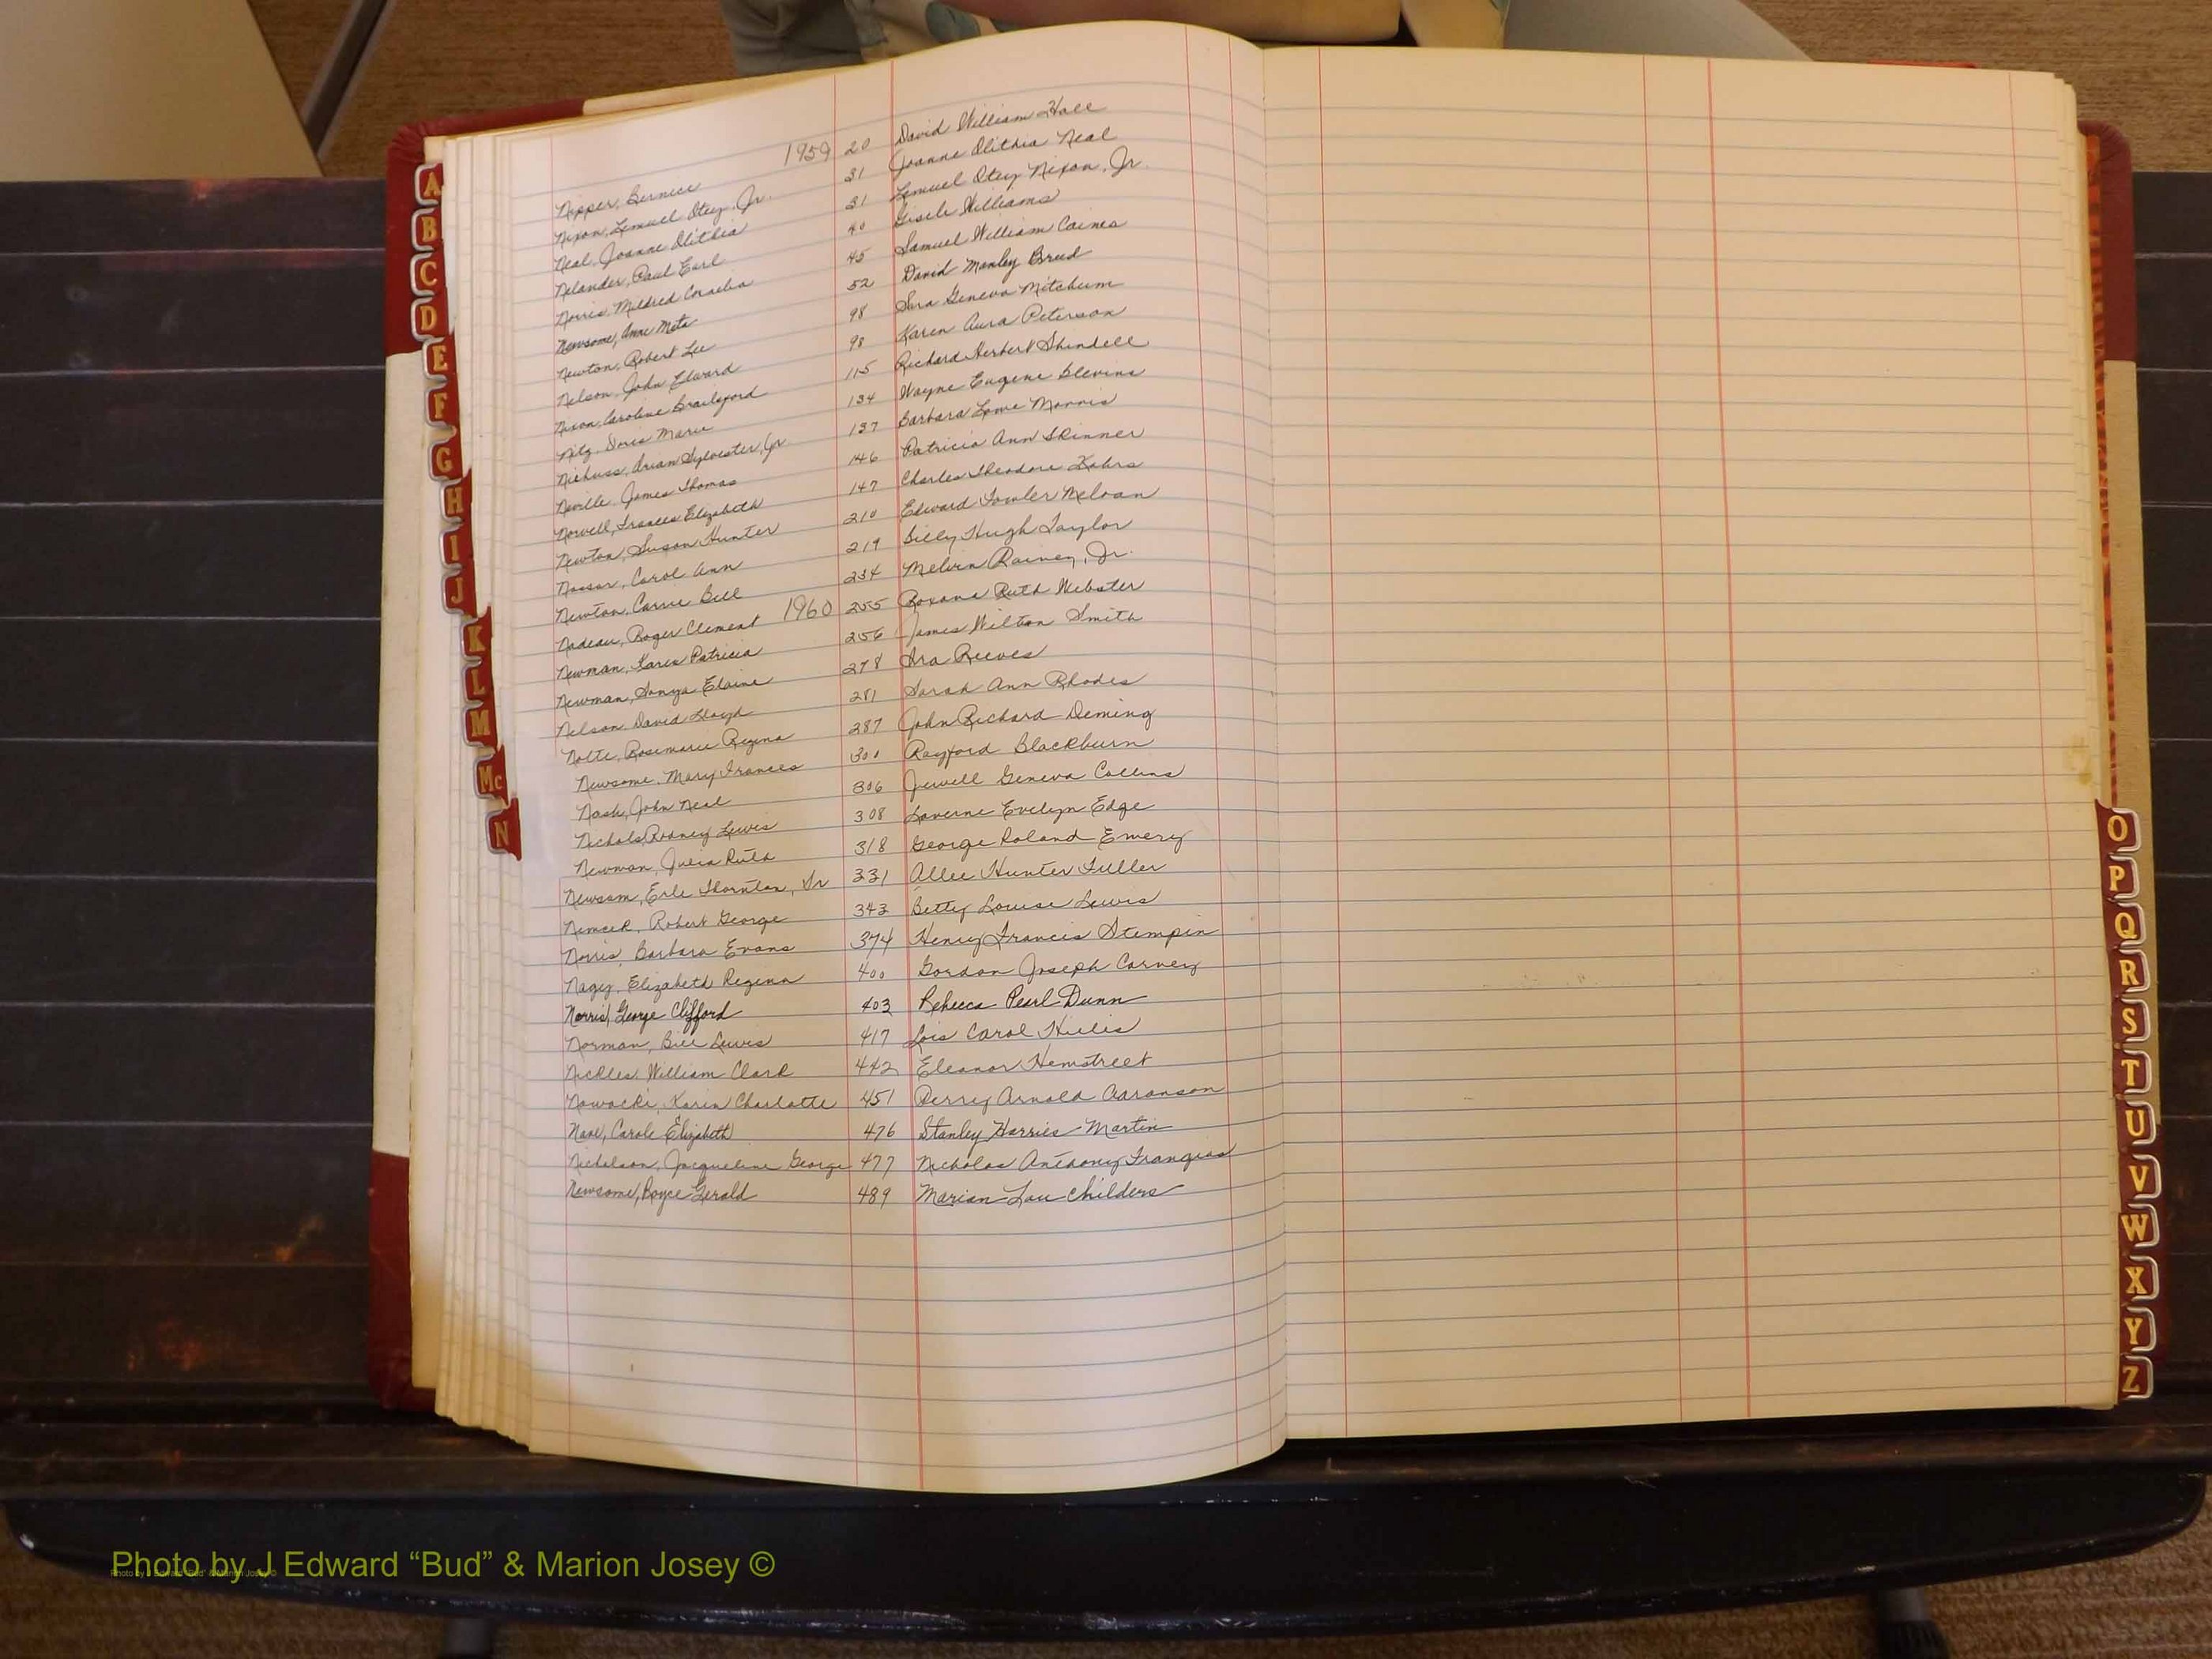 Nipper, Bernice 1959 20 David William Hall
Nixon, Lemuel Otey, Jr. 31 Joanne Olithia Neal
Neal, Joanne Olithia 31 Lemuel Otey Nixon, Jr.
Nelander, Paul Earl 40 Gisele Williams
Norris, Mildred Cornelia 45 Samuel William Caines
Newsome, Anne Meta 52 David Manley Breed
Newton, Robert Lee 98 Sara Geneva Mitchum
Nelson, John Edward 98 Karen Aura Peterson
Nixon, Caroline Brailsford 115 Richard Herbert Shindell
Nitz, Doris Marie 134 Wayne Eugene Blevins
Niehuss, Arian Sylvester, Jr. 137 Barbara Lowe Morris
Neville, James Thomas 146 Patricia Ann Skinner
Norvell, Frances Elizabeth 147 Charles Theodore Kahrs
Newton, Susan Hunter 210 Edward Fowler Meloan
Carol Ann 219 Billy Hugh Taylor
Newton, Carrie Bell 234 Melvin Rainey, Jr.
Nadeau, Roger Clement 1960 255 Roxana Ruth Webster
Newman, Karen Patricia 256 James Wilton Smith
Newman, Sonya Elaine 278 Ira Reeves
Nelson David Lloyd 281 Sarah Ann Rhodes
Nolte, Rosemarie Regina 287 John Richard Deming
Newsome, Mary Frances 300 Rayford Blackburn
Nash, John Neal 306 Jewell Geneva Collins
Nichols, Rodney Lewis 308 Laverne Evelyn Edge
Newman, Julia Ruth 318 George Roland Emery
Newsom, Erle Thornton, Sr 331 Allee Hunter Fuller
Nemcek, Robert George 343 Betty Louise Lewis
Norris, Barbara Evans 374 Henry Francis Stempin
Nagy, Elizabeth Regina 400 Gordon Joseph Carney
Norris, George Clifford 403 Rebecca Pearl Dunn
Norman, Bill Lewis 417 Lois Carol Hillis
Nickles, William Clark 442 Eleanor Hemstreet
Nowacki, Karin Charlotte 451 Perry Arnold Aaronson
Nave, Carole Elizabeth 476 Stanley Harries Martin
Nicholson, Jacqueline George 477 Nicholas Anthony Frangias
Newsome, Royce Gerald 489 Marian Lou Childers
A
B
C
D
E
F
G
H
I
J
K
L
M
Mc
N
O
P
Q
R
S
T
U
V
W
X
Y
Z
Photo by J Edward “Bud” & Marion Josey ©
Photo by J Edward "Bud" & Marion Josey ©